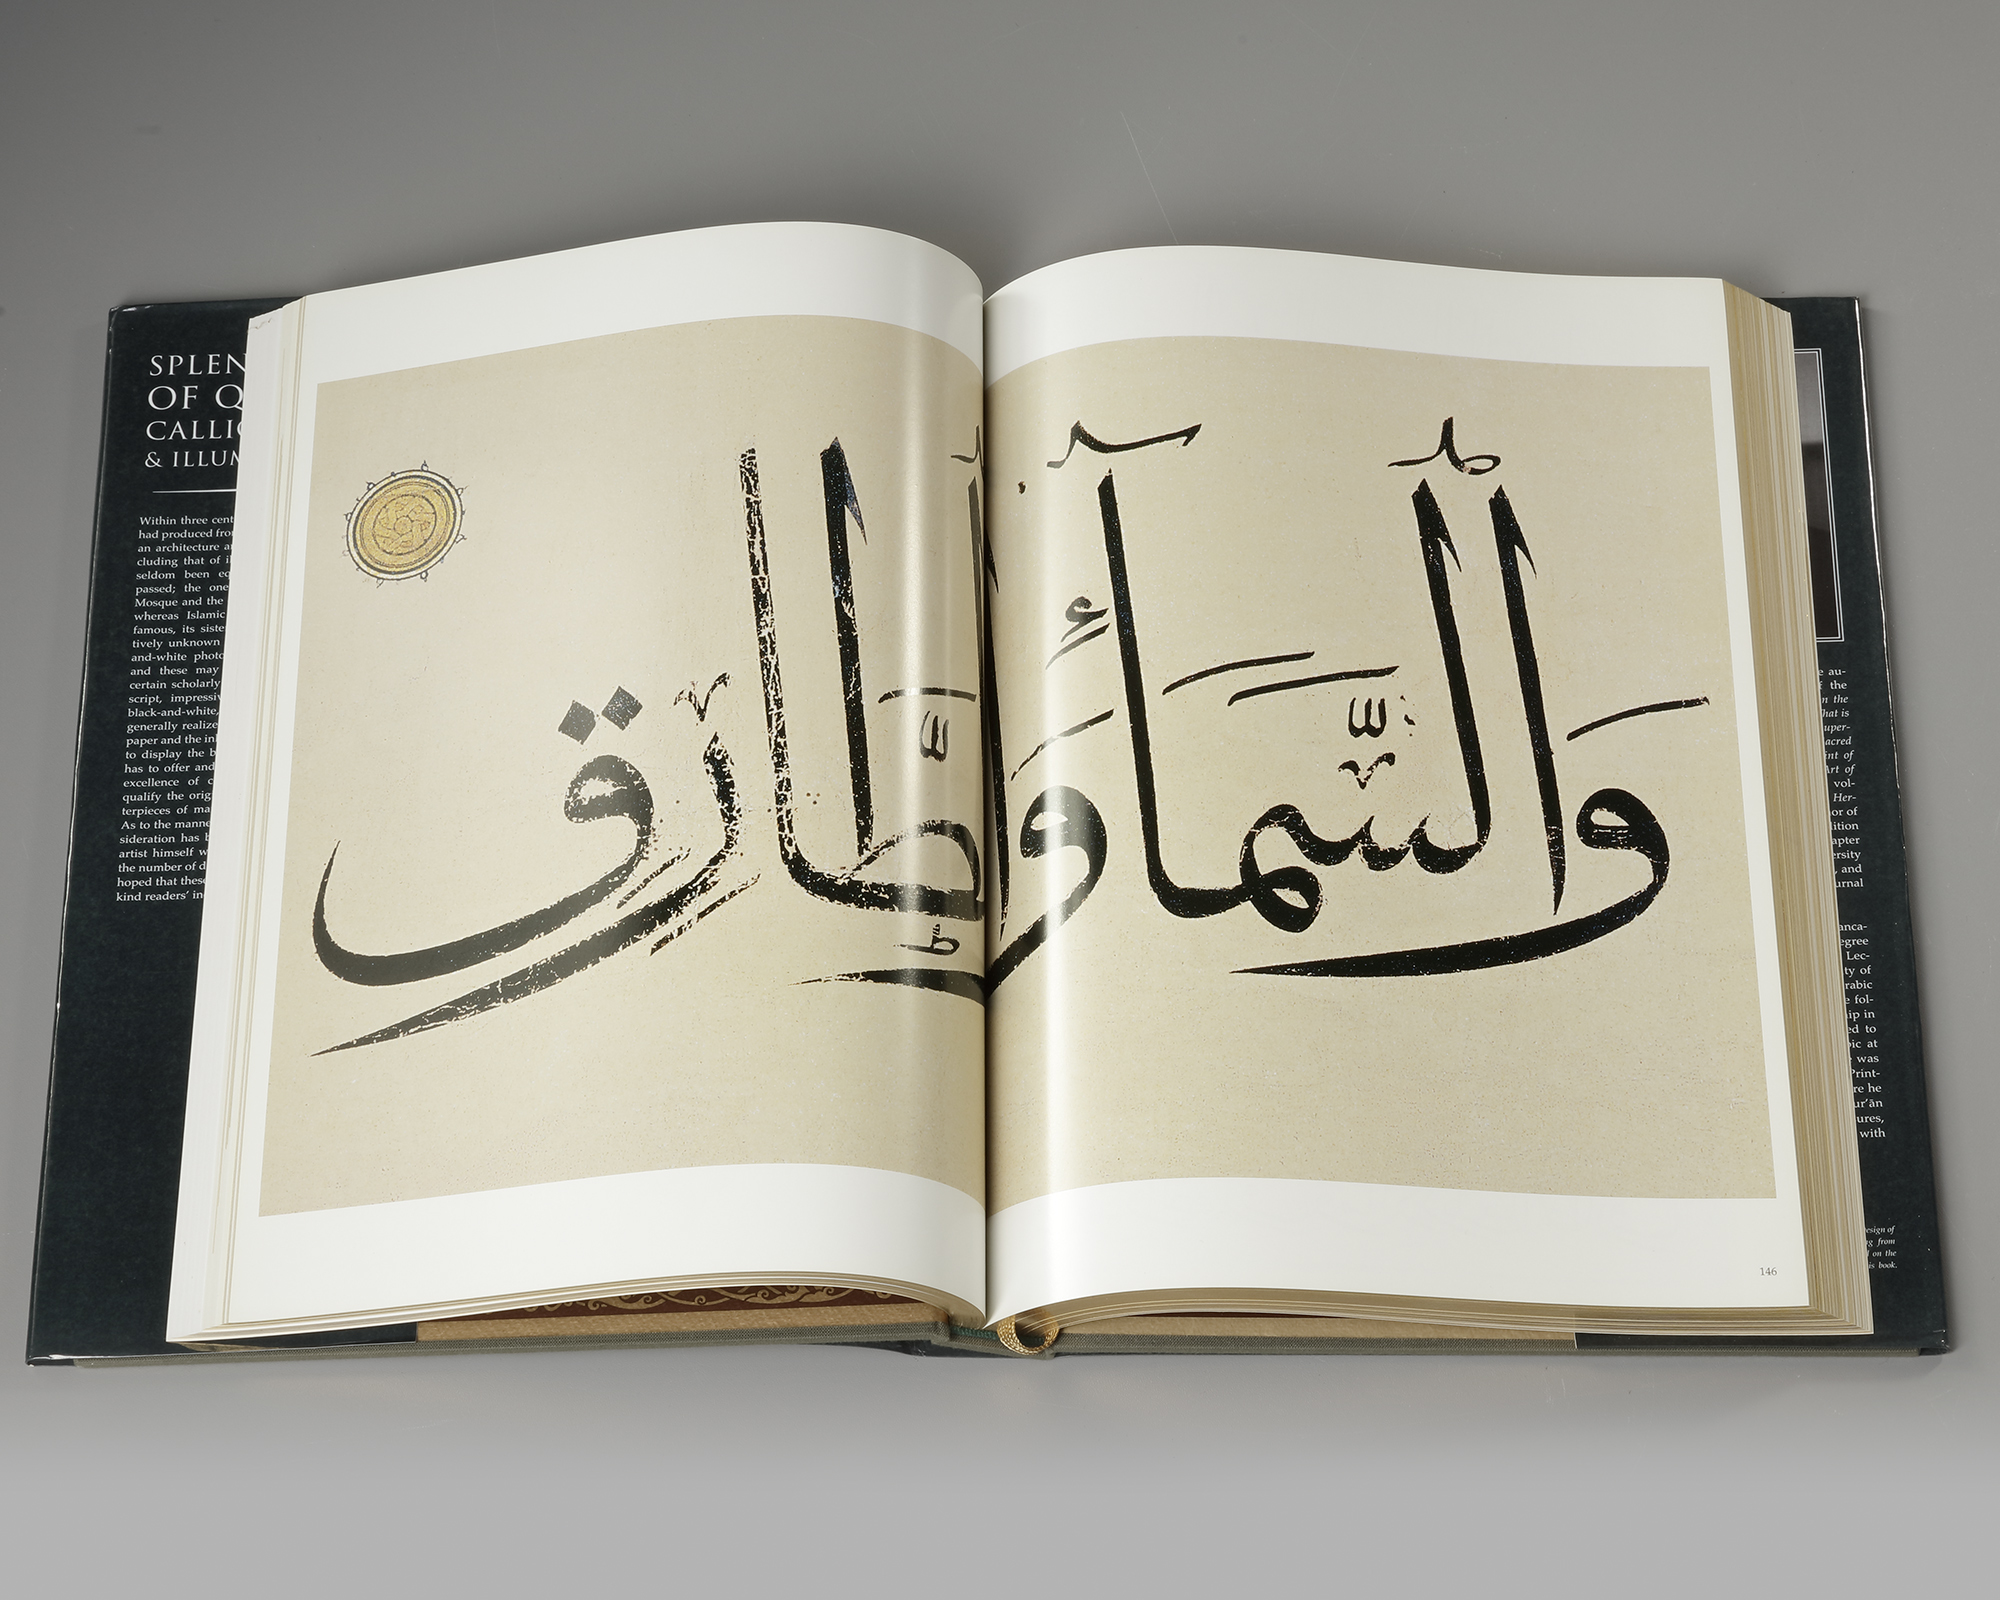 وَٱلسَّمَآءِ وَٱلطَّارِقِ
146
SPLEN
OF Q
CALLIG
& ILLUM
Within three cent
had produced fro
an architecture a
cluding that of i
seldom been eq
passed; the one
Mosque and the
whereas Islamic
famous, its siste
tively unknown
and-white photo
and these may
certain scholarly
script, impressiv
black-and-white,
generally realize
paper and the in
to display the b
has to offer and
excellence of c
qualify the orig
terpieces of ma
As to the manne
sideration has b
artist himself w
the number of d
hoped that these
kind readers' in
e au-
f the
n the
hat is
uper-
acred
int of
Art of
vol-
Her-
or of
dition
apter
ersity
, and
urnal
anca-
egree
Lec-
ty of
rabic
e fol-
ip in
ed to
ic at
was
Print-
re he
ur'ān
ures,
with
esign of
ng from
on the
is book.